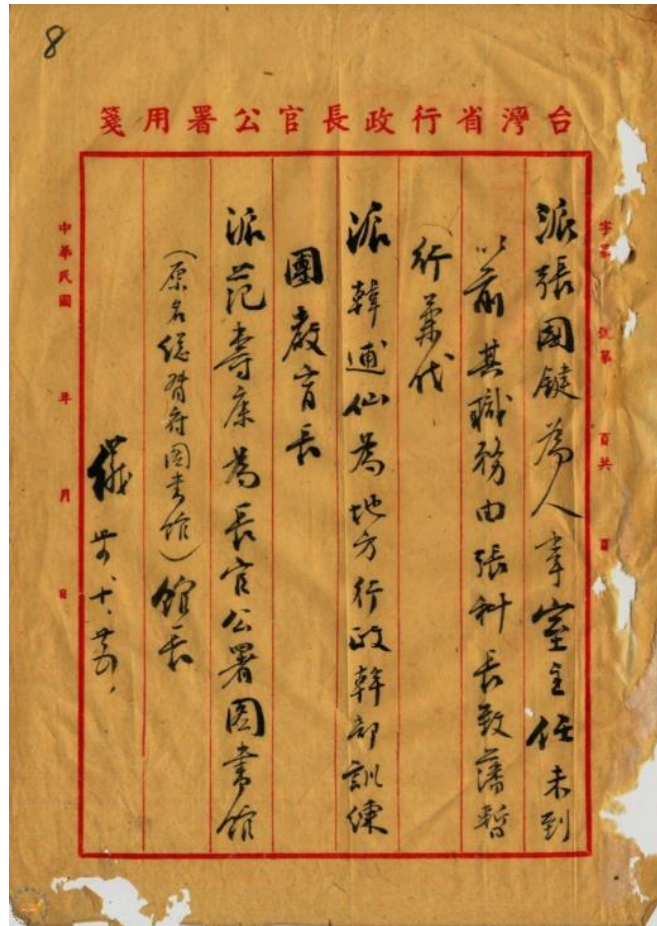 8
台灣省行政長官公署用箋
字第 號第 頁共 頁
派張國鍵為人事室主任未到
以前其職務由張科長致藩暫
行兼代
派韓逋仙為地方行政幹部訓練
團教育長
派范壽康為長官公署圖書館
(原名總督府圖書館)館長
儀 卅四、十、
中華民國 年 月 日